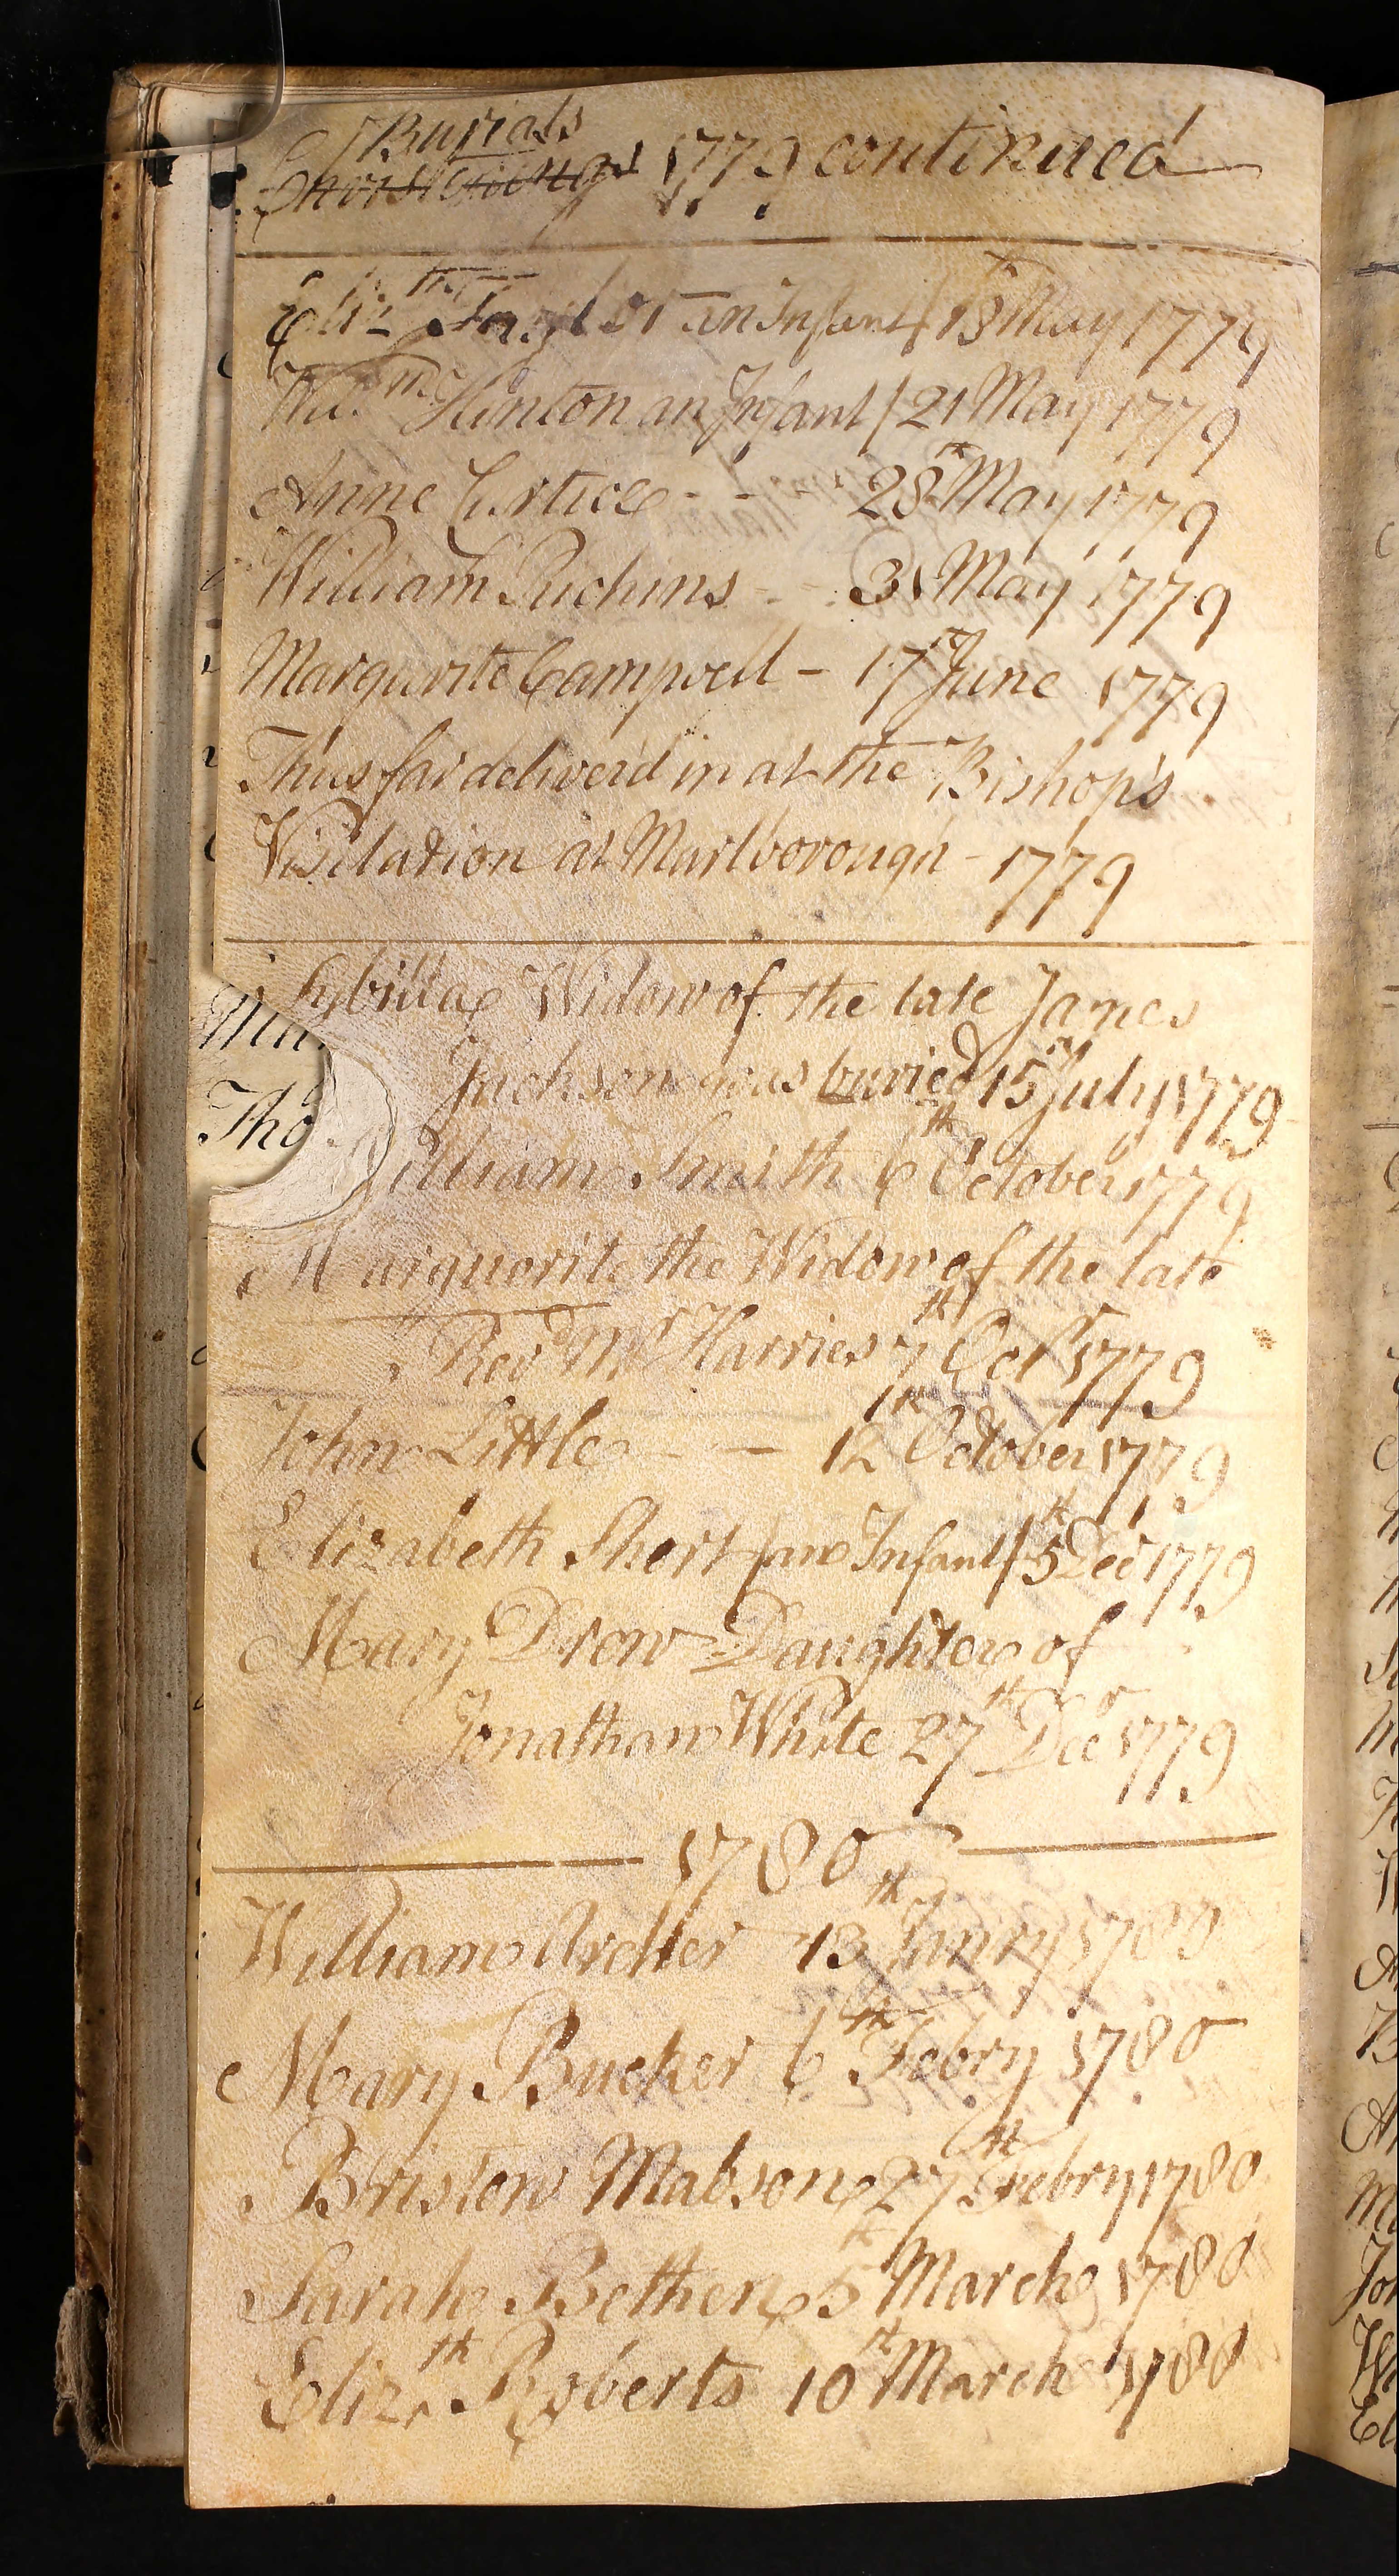 Burials
Christenings 1779 continued
Eliz.th Taylor an Infant / 18th May 1779
Will.m Hinton an Infant / 21 May 1779
Anne Cortice - - 28th May 1779
William Puchins - - 31 May 1779
Marguerite Campwell - 17th June 1779
Thus far deliver'd in at the Bishop's
Visitation at Marlborough - 1779
Sybilla Widow of the late James
Jackson was buried 15th July 1779
William Smith 6th October 1779
Marguerite the Widow of the late
Revd Mr Harries 7th Octr 1779
John Little - - 12th October 1779
Elizabeth Short / an Infant / 5th Decr 1779
Mary Drew Daughter of
Jonathan White 27th Decr 1779
1780
William Archer 13th Janry 1780
Mary Bucher 6th Febry 1780
Bristow Mabson 27th Febry 1780
Sarah Bethen 5th March 1780
Eliz.th Roberts 10th March 1780
Tho